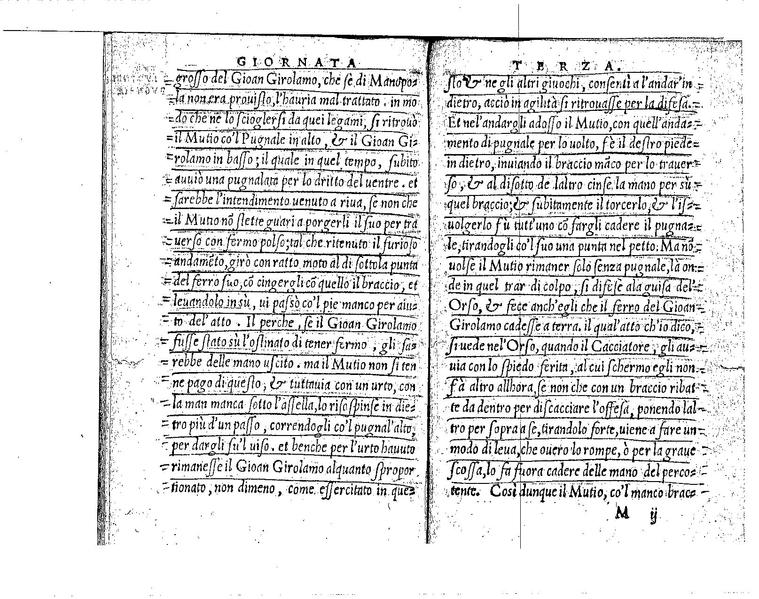 GIORNATA
grosso del Gioan Girolamo, che se di Manopo-
la non era prouisto, l'hauria mal trattato. in mo
do che ne lo sciogliersi da quei legami, si ritrouò
il Mutio co'l Pugnale in alto, & il Gioan Gi-
rolamo in basso; il quale in quel tempo, subito
auuiò una pugnalata per lo dritto del uentre. et
sarebbe l'intendimento uenuto a riua, se non che
il Mutio nõ stette guari a porgerli il suo per tra
uerso con fermo polso; tal che ritenuto il furioso
andamẽto, girò con ratto moto al di sotto la punta
del ferro suo, cõ cingergli cõ quello il braccio, et
leuandolo in sù, ui passò co'l pie manco per aiu-
to del'atto. Il perche, se il Gioan Girolamo
fusse stato sù l'ostinato di tener fermo, gli sa-
rebbe delle mano uscito. ma il Mutio non si ten
ne pago di questo; & tuttauia con un urto, con
la man manca sotto l'assella, lo risospinse in die-
tro più d'un passo, correndogli co'l pugnal'alto,
per dargli su'l uiso. et benche per l'urto hauuto
rimanesse il Gioan Girolamo alquanto spropor
tionato, non dimeno, come essercitato in que-
TERZA.
sto & ne gli altri giuochi, consentì a l'andar'in
dietro, acciò in agilità si ritrouasse per la difesa.
Et nel'andargli adosso il Mutio, con quell'anda-
mento di pugnale per lo uolto, fè il destro piede
in dietro, inuiando il braccio mãco per lo trauer-
so, & al disotto de laltro cinse la mano per sù
quel braccio; & subitamente il torcerlo, & l'is-
uolgerlo fù tutt'uno cõ fargli cadere il pugna-
le, tirandogli co'l suo una punta nel petto. Ma nõ
uolse il Mutio rimaner solo senza pugnale, là on-
de in quel trar di colpo, si difese a la guisa del'
Orso, & fece anch'egli che il ferro del Gioan
Girolamo cadesse a terra. il qual'atto ch'io dico,
si uede nel'Orso, quando il Cacciatore, gli au-
uia con lo spiedo ferita, al cui schermo egli non
fà altro allhora, se non che con un braccio ribat-
te da dentro per discacciare l'offesa, ponendo lal-
tro per sopra a se, tirandolo forte, uiene a fare un
modo di leua, che ouero lo rompe, ò per la graue
scossa, lo fa fuora cadere delle mano del perco-
tente. Così dunque il Mutio, co'l manco brac-
M ij